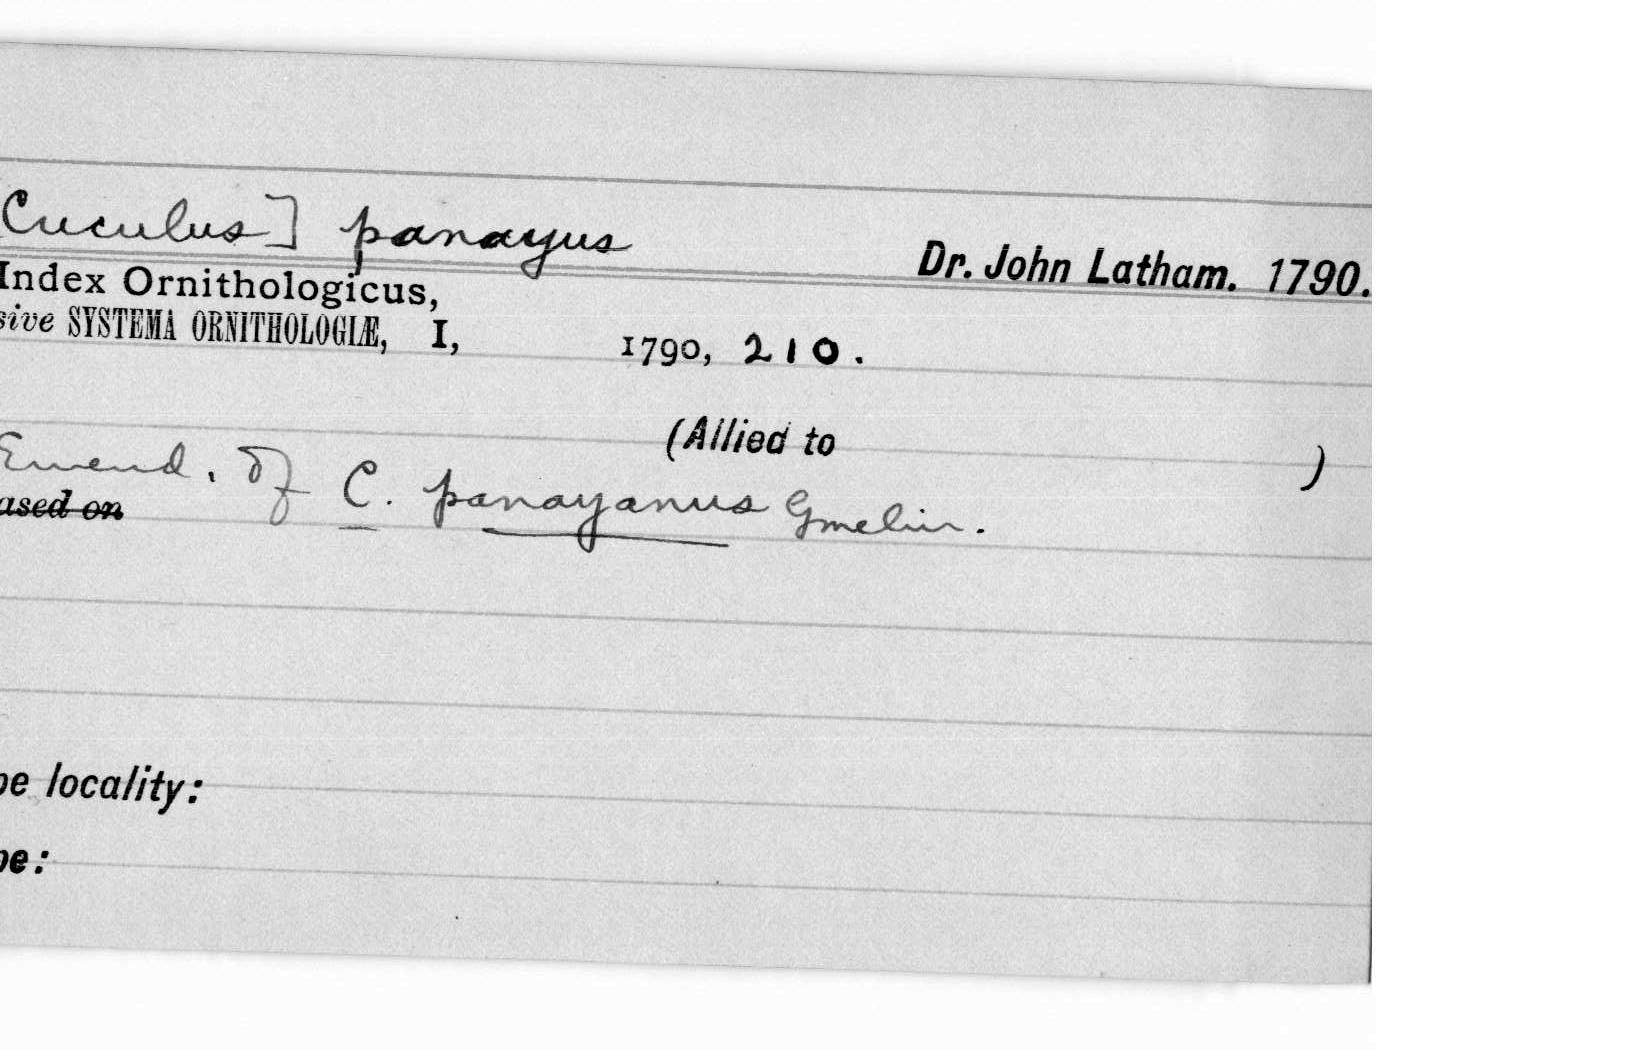 Cuculus] panayus
Dr. John Latham. 1790.
Index Ornithologicus,
sive SYSTEMA ORNITHOLOGIÆ, I, 1790, 210.
(Allied to )
Emend. of C. panayanus Gmelin.
ased on
pe locality:
pe: